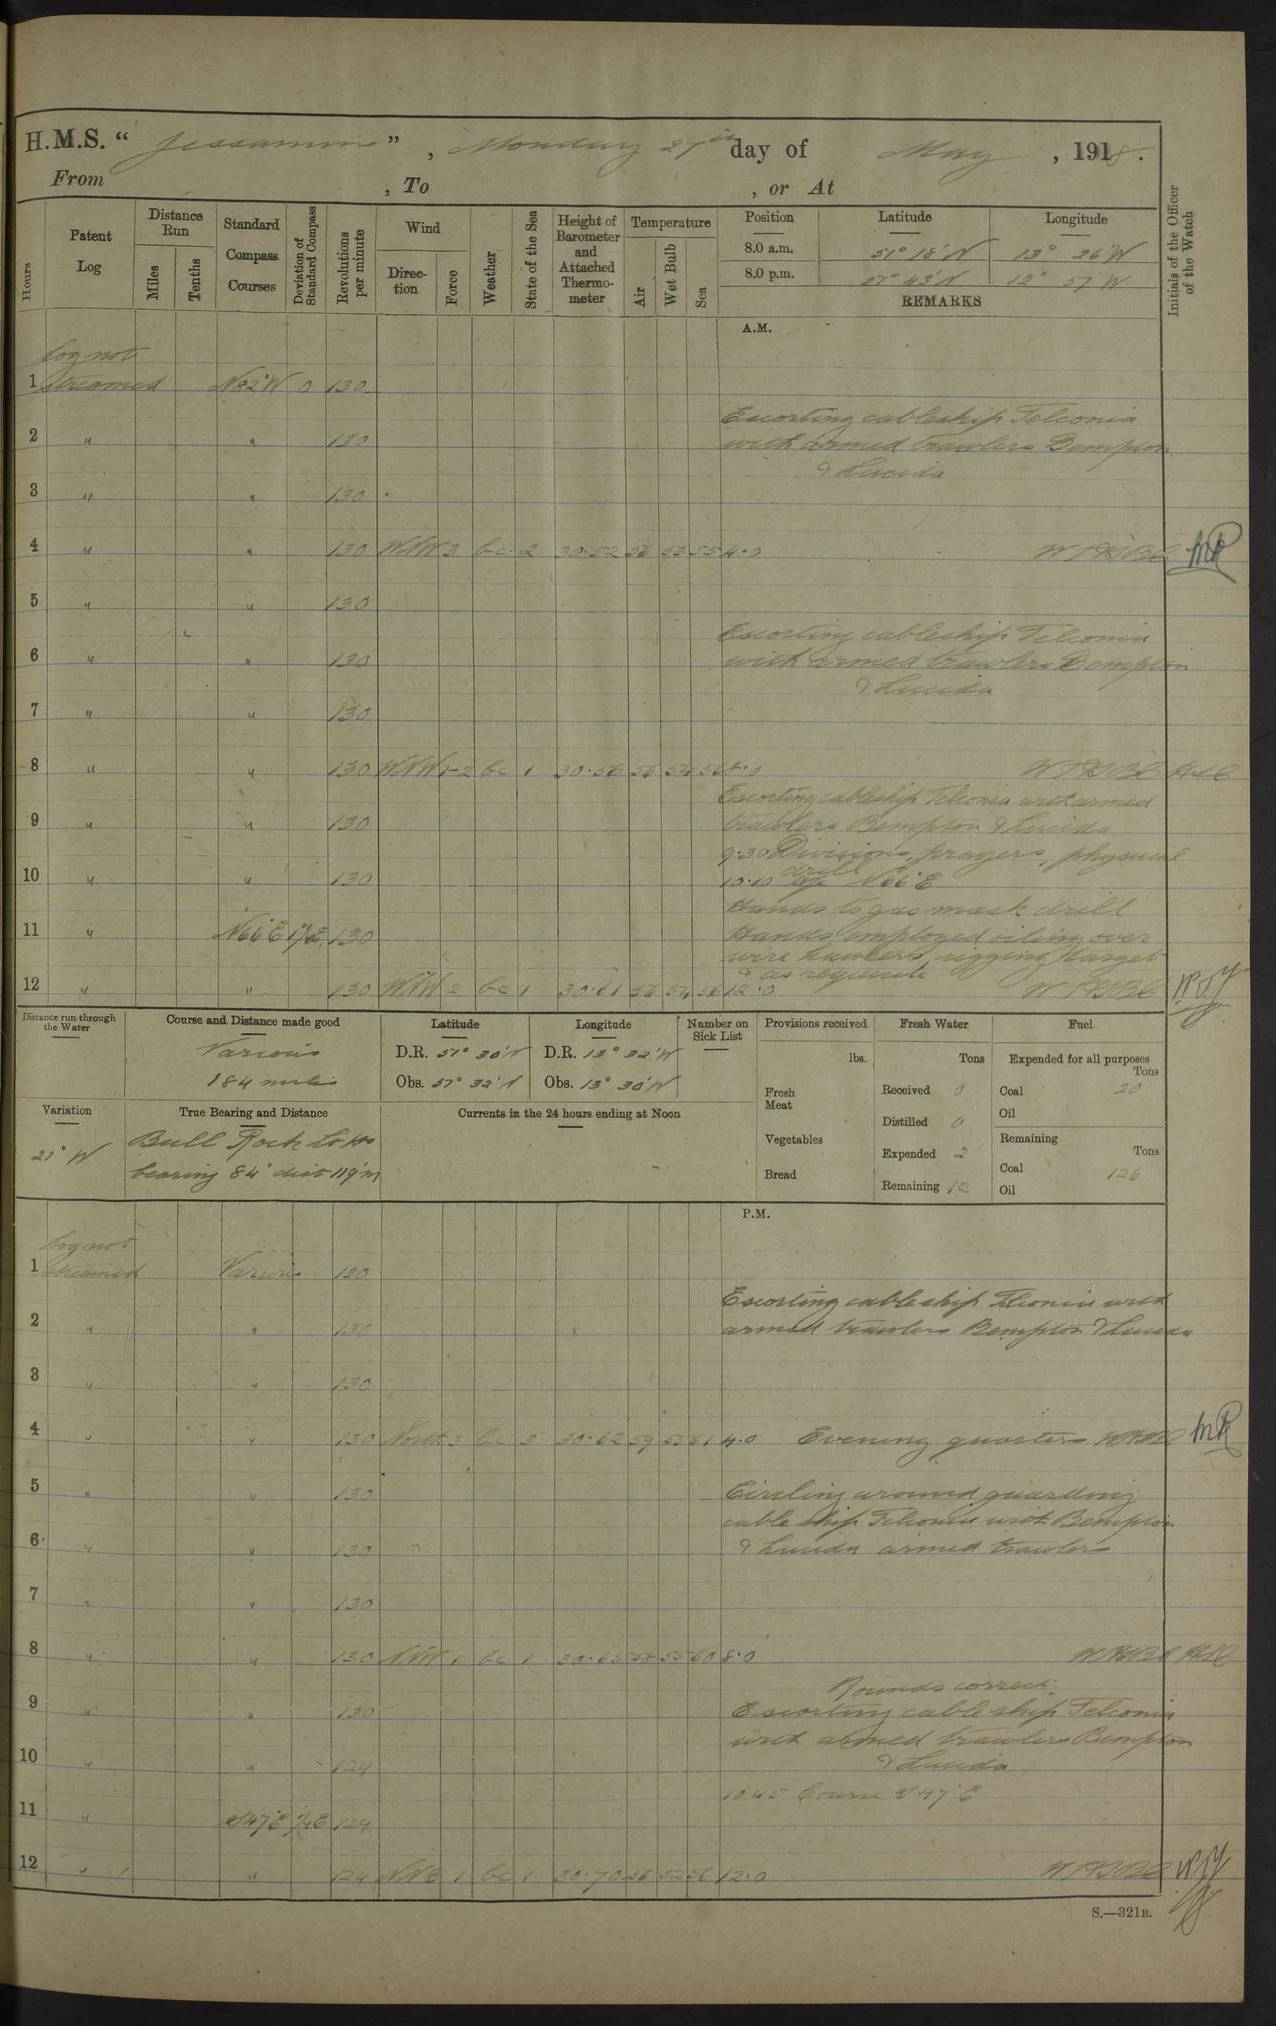 H.M.S. “ Jessamine ” , Monday 27th day of May , 1918.
From , To , or At
Hours
Patent Log
Distance Run
Miles
Tenths
Standard Compass Courses
Deviation of Standard Compass
Revolutions per minute
Wind
Direction
Force
Weather
State of the Sea
Height of Barometer and Attached Thermometer
Temperature
Air
Wet Bulb
Sea
Position Latitude Longitude
8.0 a.m. 51° 18' N 13° 26' W
8.0 p.m. 51° 43' N 12° 57' W
REMARKS
Initials of the Officer of the Watch
A.M.
Log not
1 streamed N32°W 0 130
Escorting cableship Telconia
2 " " 130 with armed trawlers Bempton
& Lucida
3 " " 130
4 " " 130 WNW 3 bc 2 30.52 56 53 55 4.0
5 " " 130
Escorting cableship Telconia
6 " " 130 with armed trawlers Bempton
& Lucida
7 " " 130
8 " " 130 WNW 1-2 bc 1 30.56 56 54 56 8.0
Escorting cableship Telconia with armed
9 " " 130 trawlers Bempton & Lucida
9.30 Divisions, prayers, physical
drill
10 " " 130 10.10 a/c N66°E
Hands to gas mask drill
11 " N66°E 130 Hands employed oiling over
wire hawsers, rigging target
& as requisite
12 " " 130 WNW 2 bc 1 30.61 56 54 56 12.0
Distance run through the Water
Course and Distance made good
Various
184 miles
Latitude
D.R. 51° 30' N
Obs. 51° 32' N
Longitude
D.R. 13° 32' W
Obs. 13° 30' W
Number on Sick List
Provisions received
lbs.
Fresh Meat
Vegetables
Bread
Fresh Water
Tons
Received 0
Distilled 0
Expended 2
Remaining 12
Fuel
Expended for all purposes
Tons
Coal 20
Oil
Remaining
Tons
Coal 126
Oil
Variation
21° W
True Bearing and Distance
Bull Rock Lt Ho
bearing 84° dist 119' m
Currents in the 24 hours ending at Noon
P.M.
Log not
1 streamed Various 130
Escorting cableship Telconia with
2 " " 130 armed trawlers Bempton & Lucida
3 " " 130
4 " " 130 North 3 bc 3 30.62 59 55 61 4.0 Evening quarters
5 " " 130 Circling around guarding
cable ship Telconia with Bempton
6 " " 130 & Lucida armed trawlers
7 " " 130
8 " " 130 NNW 1 bc 1 30.65 58 55 60 8.0
Rounds correct.
9 " " 130 Escorting cable ship Telconia
with armed trawlers Bempton
10 " " 124 & Lucida
10.45 Course S47°E
11 " S47°E 124
12 " " 124 NNE 1 bc 1 30.70 56 52 56 12.0
S.—321B.